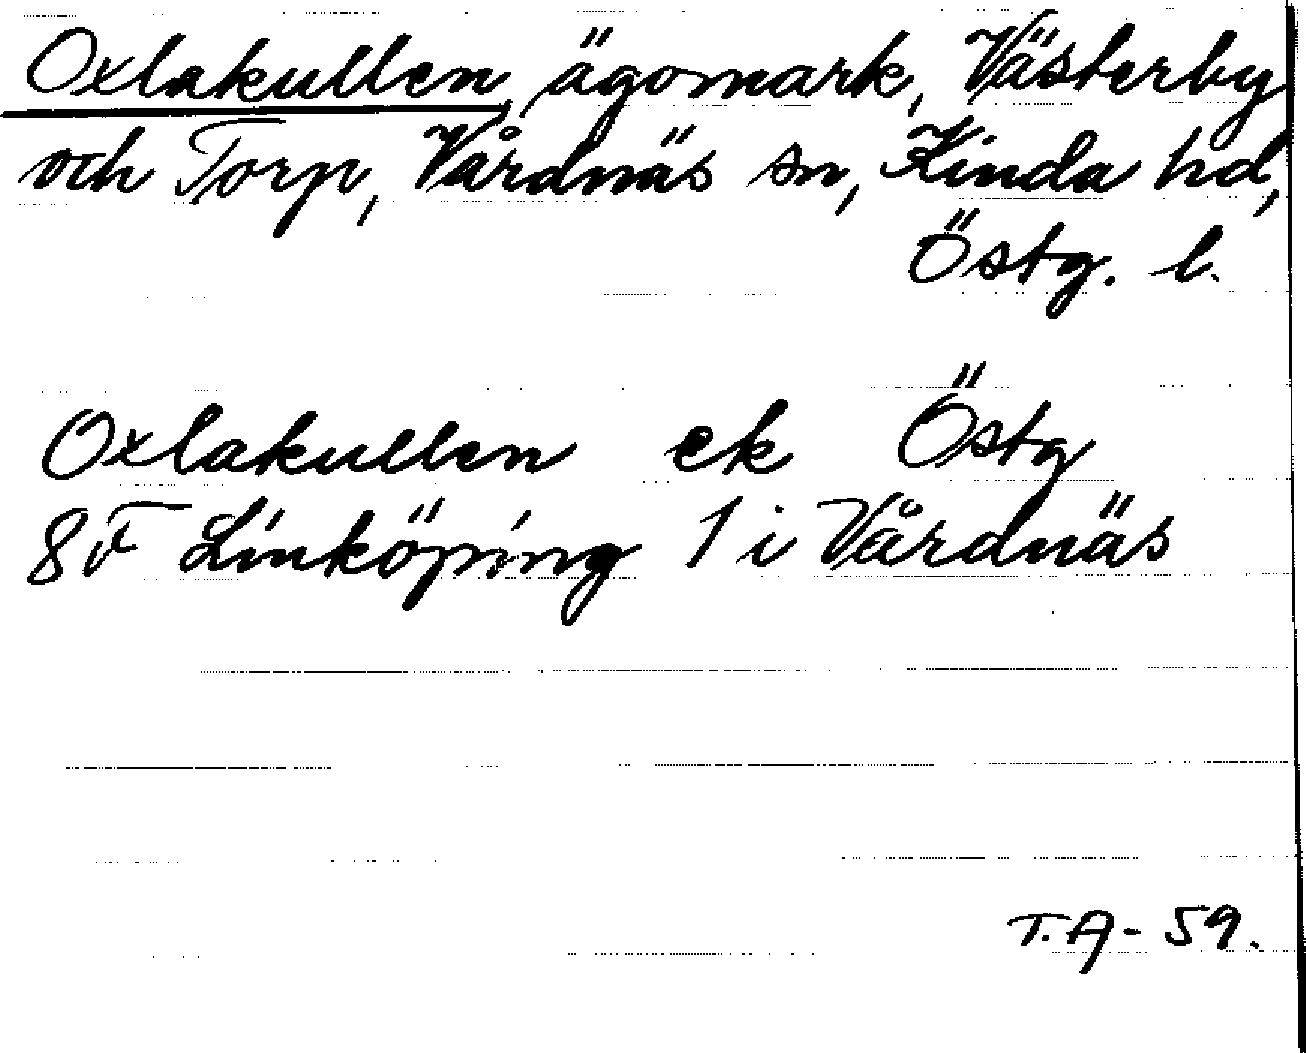 Oxlakullen, ägomark, Västerby
och Torp, Vårdnäs sn, Kinda hd,
Östg. l.
Oxlakullen ek Östg
8F Linköping 1 i Vårdnäs
T.A- 59.